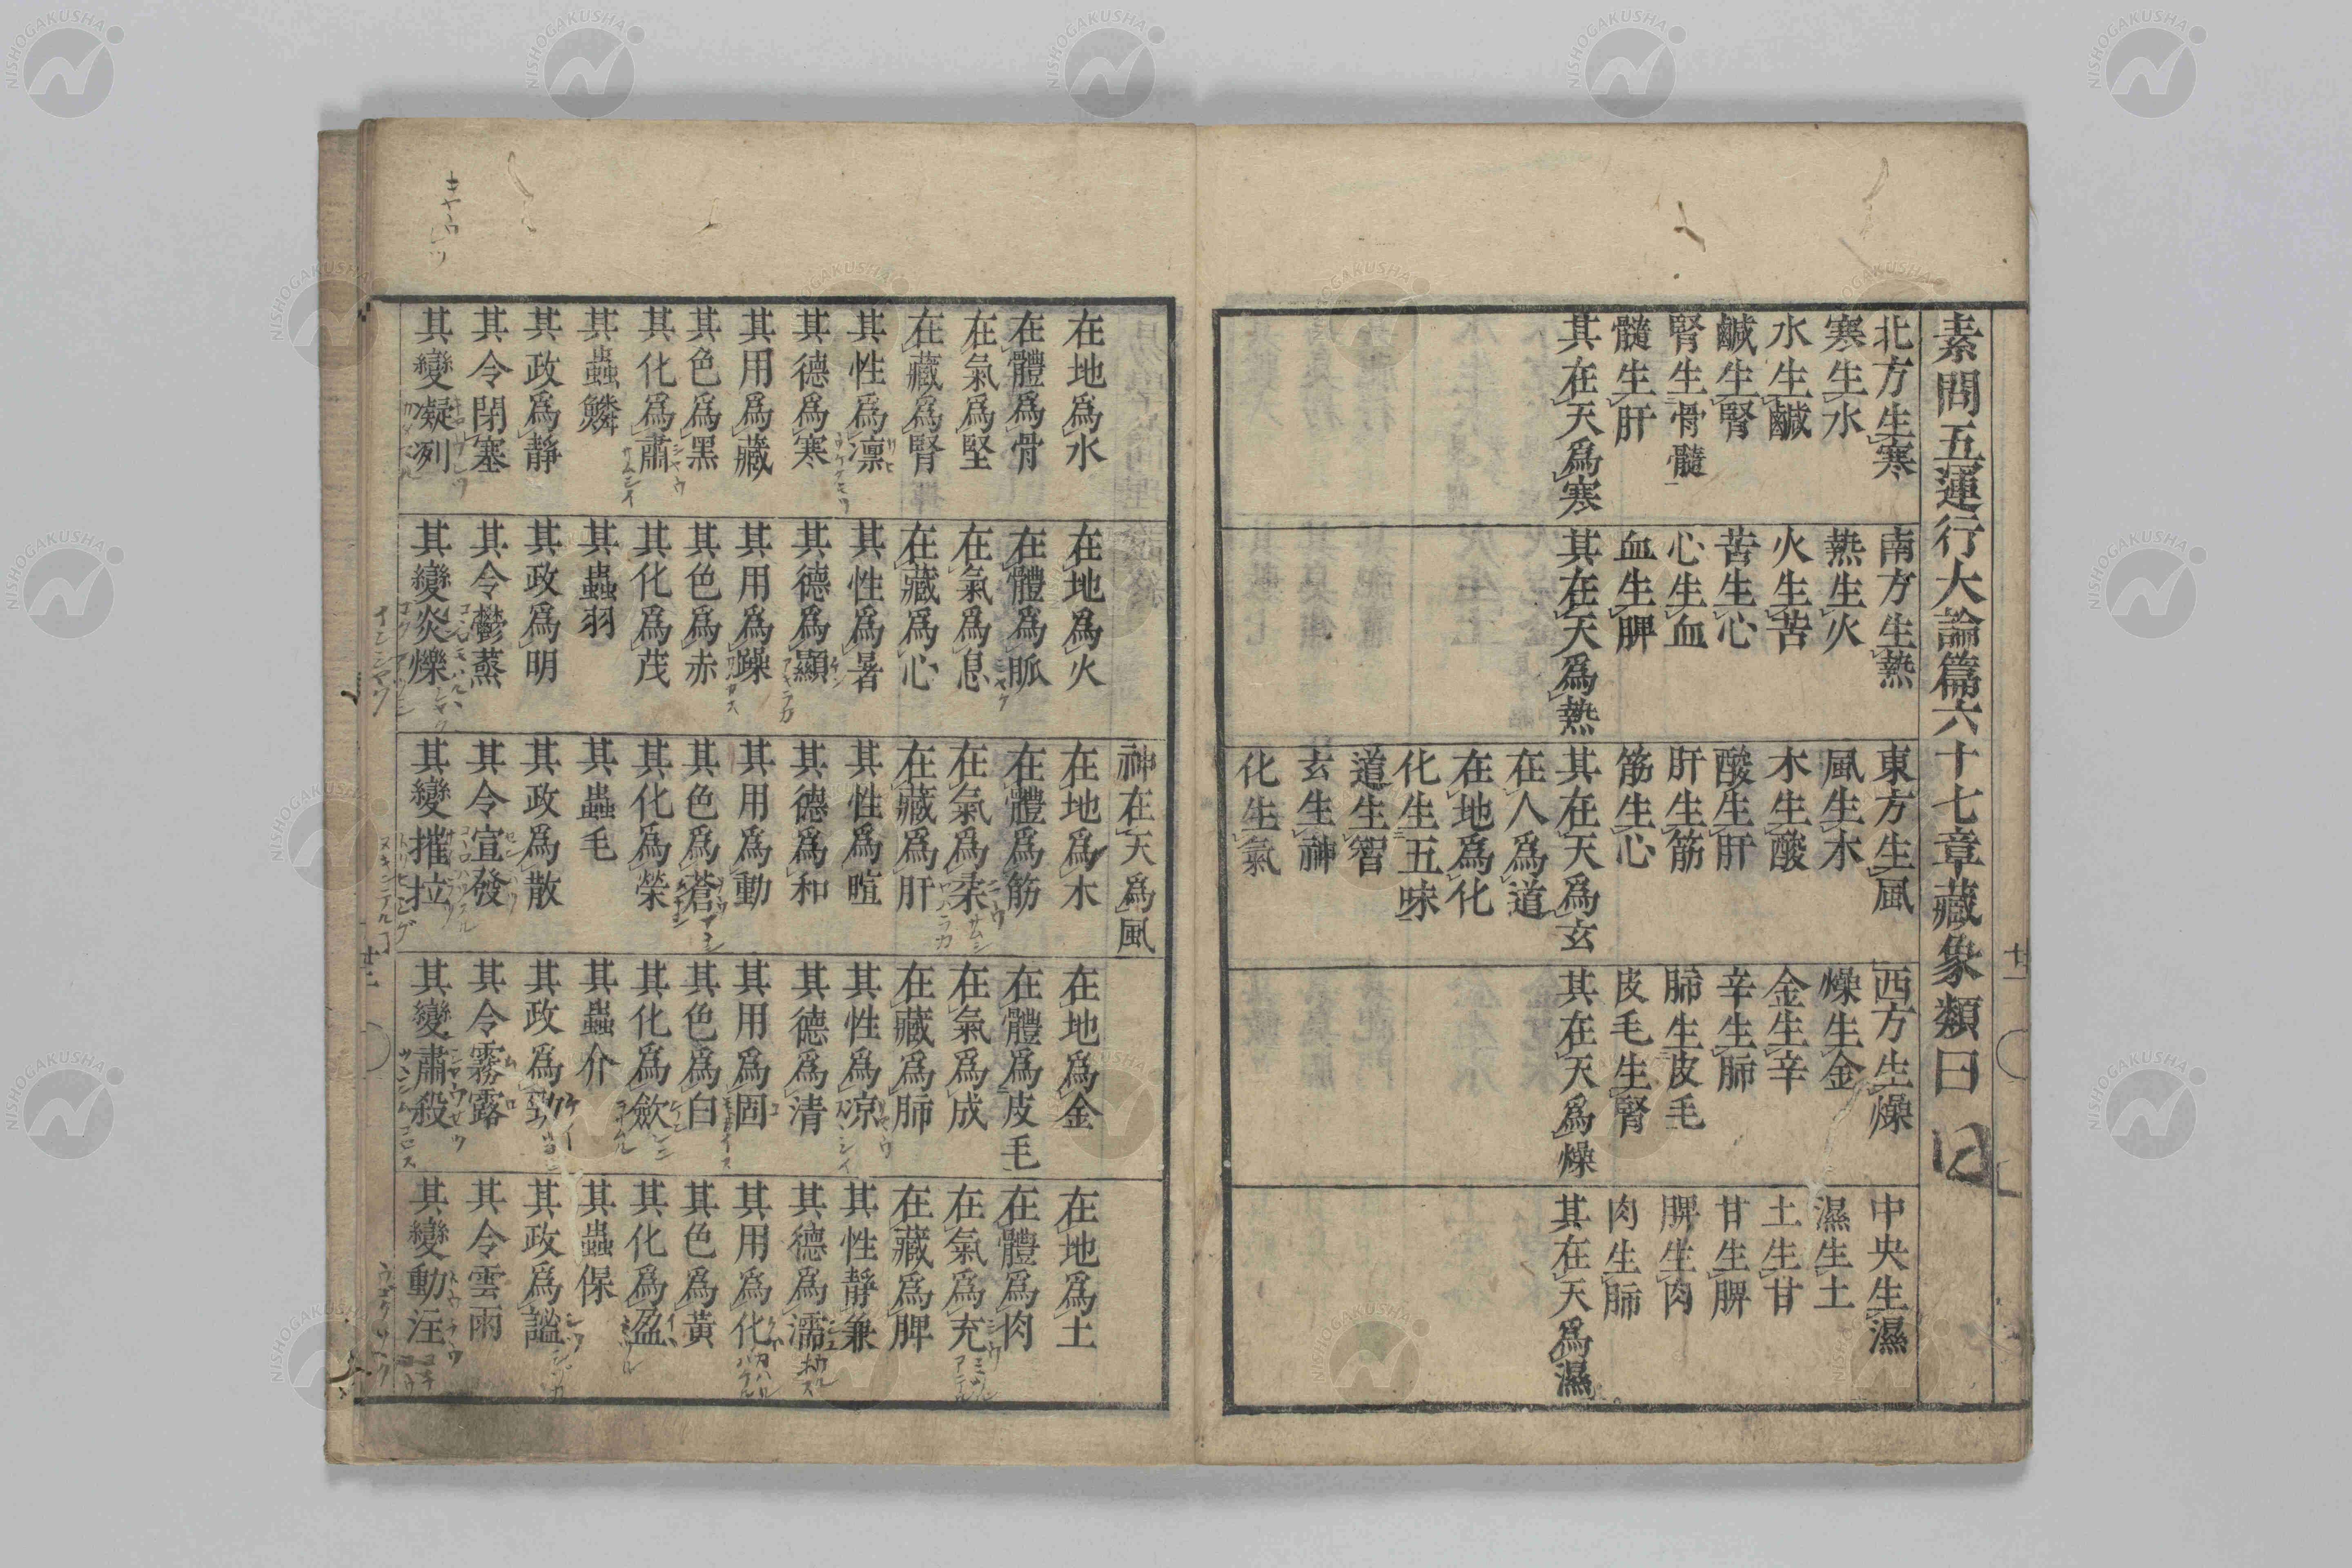 素問五運行大論篇六十七章藏象類曰
北方生寒
寒生水
水生鹹
鹹生腎
腎生骨髓
髓生肝
其在天爲寒
南方生熱
熱生火
火生苦
苦生心
心生血
血生脾
其在天爲熱
東方生風
風生木
木生酸
酸生肝
肝生筋
筋生心
其在天爲玄
在人爲道
在地爲化
化生五味
道生智
玄生神
化生氣
西方生燥
燥生金
金生辛
辛生肺
肺生皮毛
皮毛生腎
其在天爲燥
中央生濕
濕生土
土生甘
甘生脾
脾生肉
肉生肺
其在天爲濕
廿一
在地爲水
在體爲骨
在氣爲堅
在藏爲腎
其性爲凛
其德爲寒
其用爲藏
其色爲黑
其化爲肅
其蟲鱗
其政爲靜
其令閉塞
其變凝列
在地爲火
在體爲脈
在氣爲息
在藏爲心
其性爲暑
其德爲顯
其用爲躁
其色爲赤
其化爲茂
其蟲羽
其政爲明
其令鬱蒸
其變炎爍
神在天爲風
在地爲木
在體爲筋
在氣爲柔
在藏爲肝
其性爲暄
其德爲和
其用爲動
其色爲蒼
其化爲榮
其蟲毛
其政爲散
其令宣發
其變摧拉
在地爲金
在體爲皮毛
在氣爲成
在藏爲肺
其性爲凉
其德爲清
其用爲固
其色爲白
其化爲斂
其蟲介
其政爲勁
其令霧露
其變肅殺
在地爲土
在體爲肉
在氣爲充
在藏爲脾
其性靜兼
其德爲濡
其用爲化
其色爲黃
其化爲盈
其蟲倮
其政爲謐
其令雲雨
其變動注
廿二
NISHOGAKUSHA